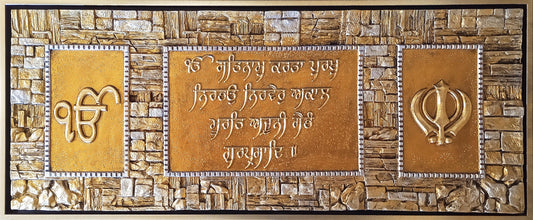 ੴ
ੴ ਸਤਿਨਾਮੁ ਕਰਤਾ ਪੁਰਖੁ
ਨਿਰਭਉ ਨਿਰਵੈਰੁ ਅਕਾਲ
ਮੂਰਤਿ ਅਜੂਨੀ ਸੈਭੰ
ਗੁਰਪ੍ਰਸਾਦਿ ॥